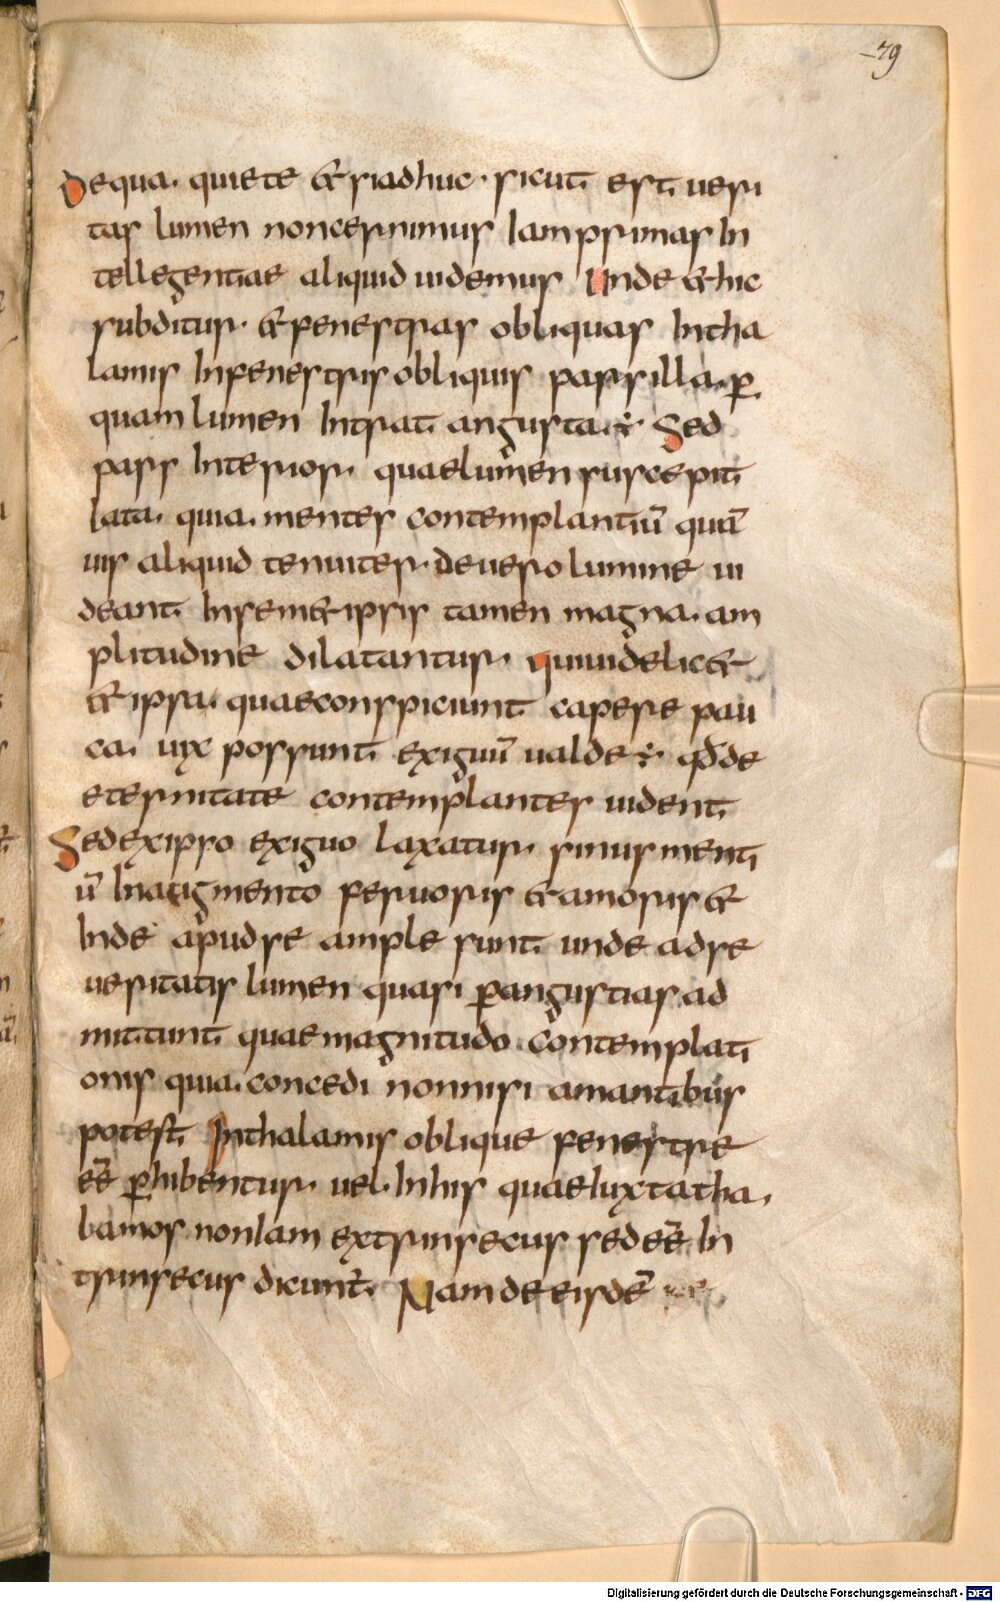 79
Dequa. quiete & siadhuc. sicut est ueri
tas lumen noncernimus Iam primas In
tellegentiae aliquid uidemus Unde & hic
subditur. & fenestras obliquas Intha
lamis In fenestris obliquis pars illa. p̄
quam lumen Intrat angusta. ē. Sed
pars Interior. quae lumen suscepit
lata. quia. mentes contemplantiū quā
uis aliquid tenuiter. deuero lumine ui
deant In sem&ipsis tamen magna. am
plitudine dilatantur. quiuidelic&
& ipsa. quaeconspiciunt capere pau
ca. uix possunt exiguū ualde ē. qđ de
eternitate contemplantes uident
Sed exipso exiguo laxatur. sinus menti
ū In augmento feruoris & amoris &
Inde apud se ample sunt unde ad se
ueritatis lumen quasi p̄ angustias ad
mittunt quae magnitudo contemplati
onis quia. concedi non nisi amantibus
potest In thalamis oblique fenestre
eē p̄hibentur. uel. In his quae Iuxta tha.
lamos non Iam extrinsecus sed eē In
trinsecus dicunt̄. Nam de eisdē
Digitalisierung gefördert durch die Deutsche Forschungsgemeinschaft - DFG